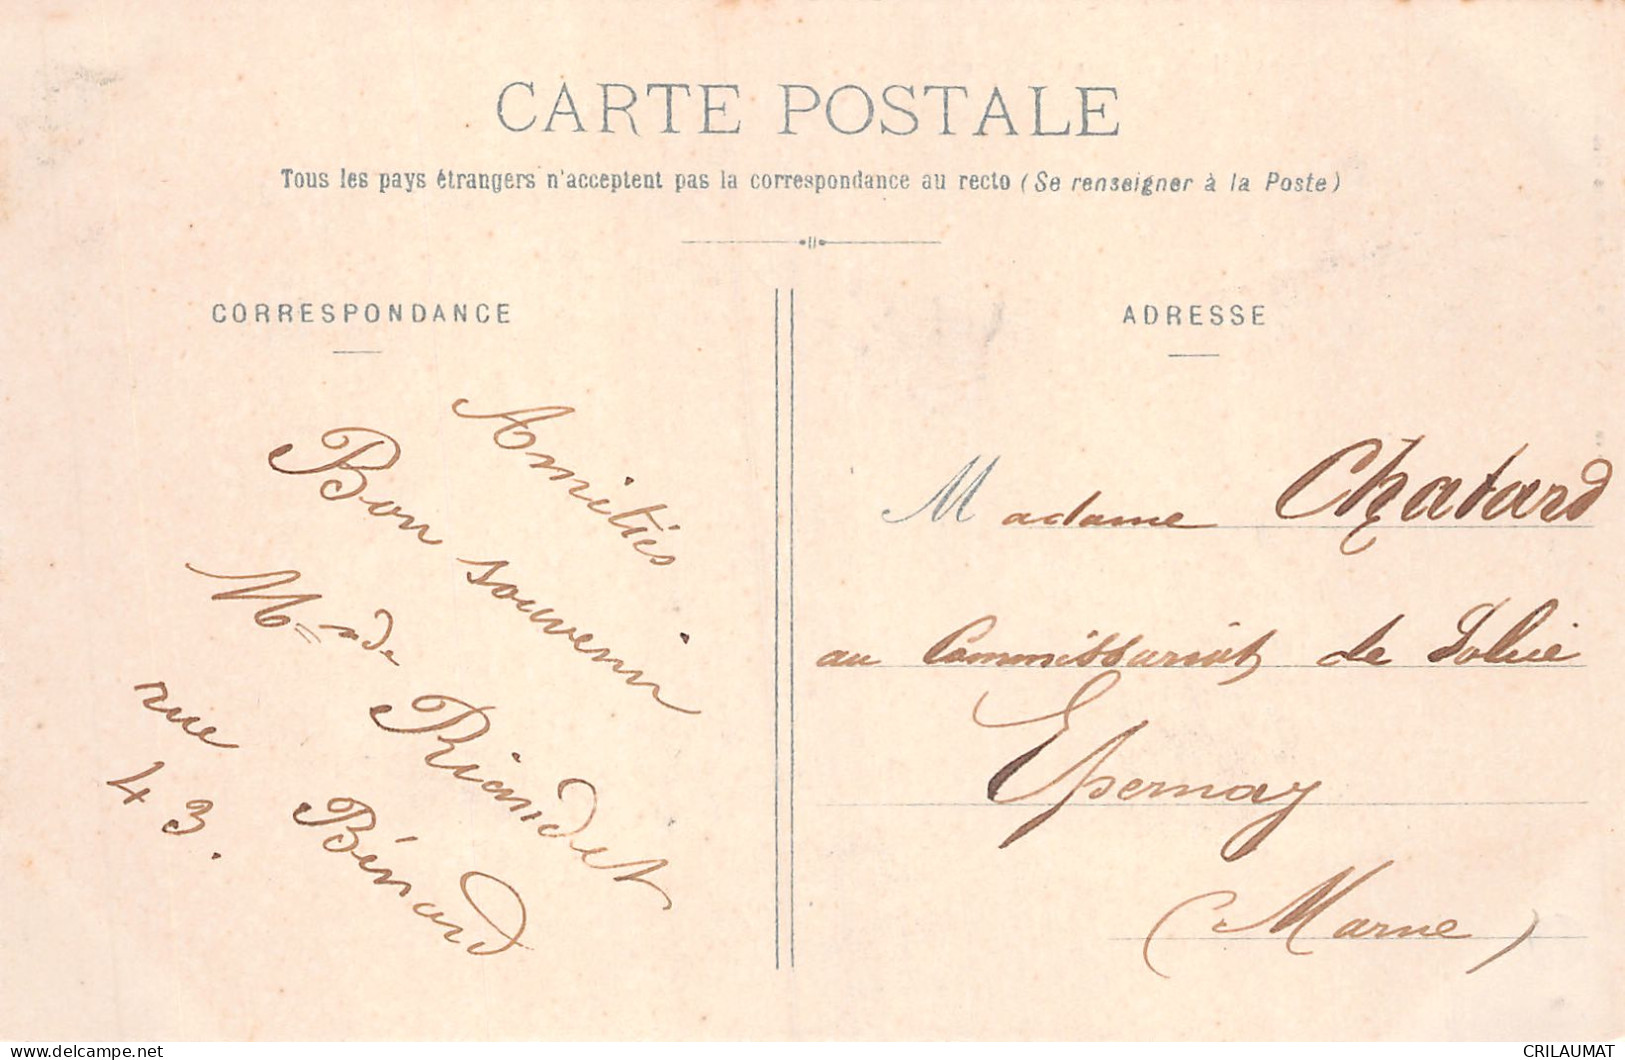 CARTE POSTALE
Tous les pays étrangers n'acceptent pas la correspondance au recto (Se renseigner à la Poste)
CORRESPONDANCE
Amitiés
Bon souvenir
Riandet
rue Bénard
43.
ADRESSE
Madame Chatard
au Commissariat de Police
Epernay
(Marne)
delcampe.net
CRILAUMAT